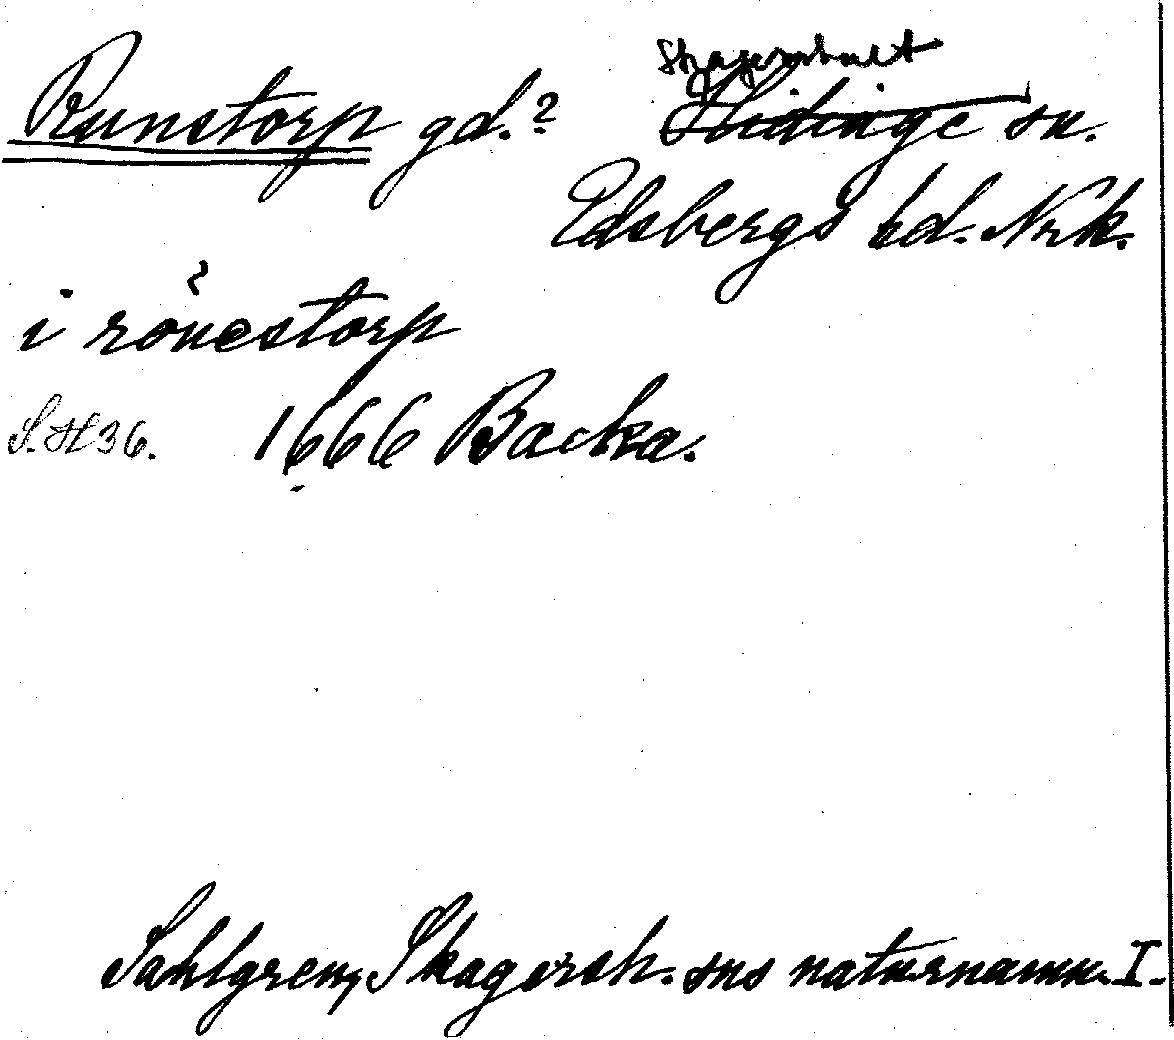 Skagershult
Runstorp gd.? Hidinge sn.
Edsbergs hd. Nrk.
i rönestorp
S. 36. 1666 Backa.
Sahlgren, Skagersh. sns naturnamn. I.